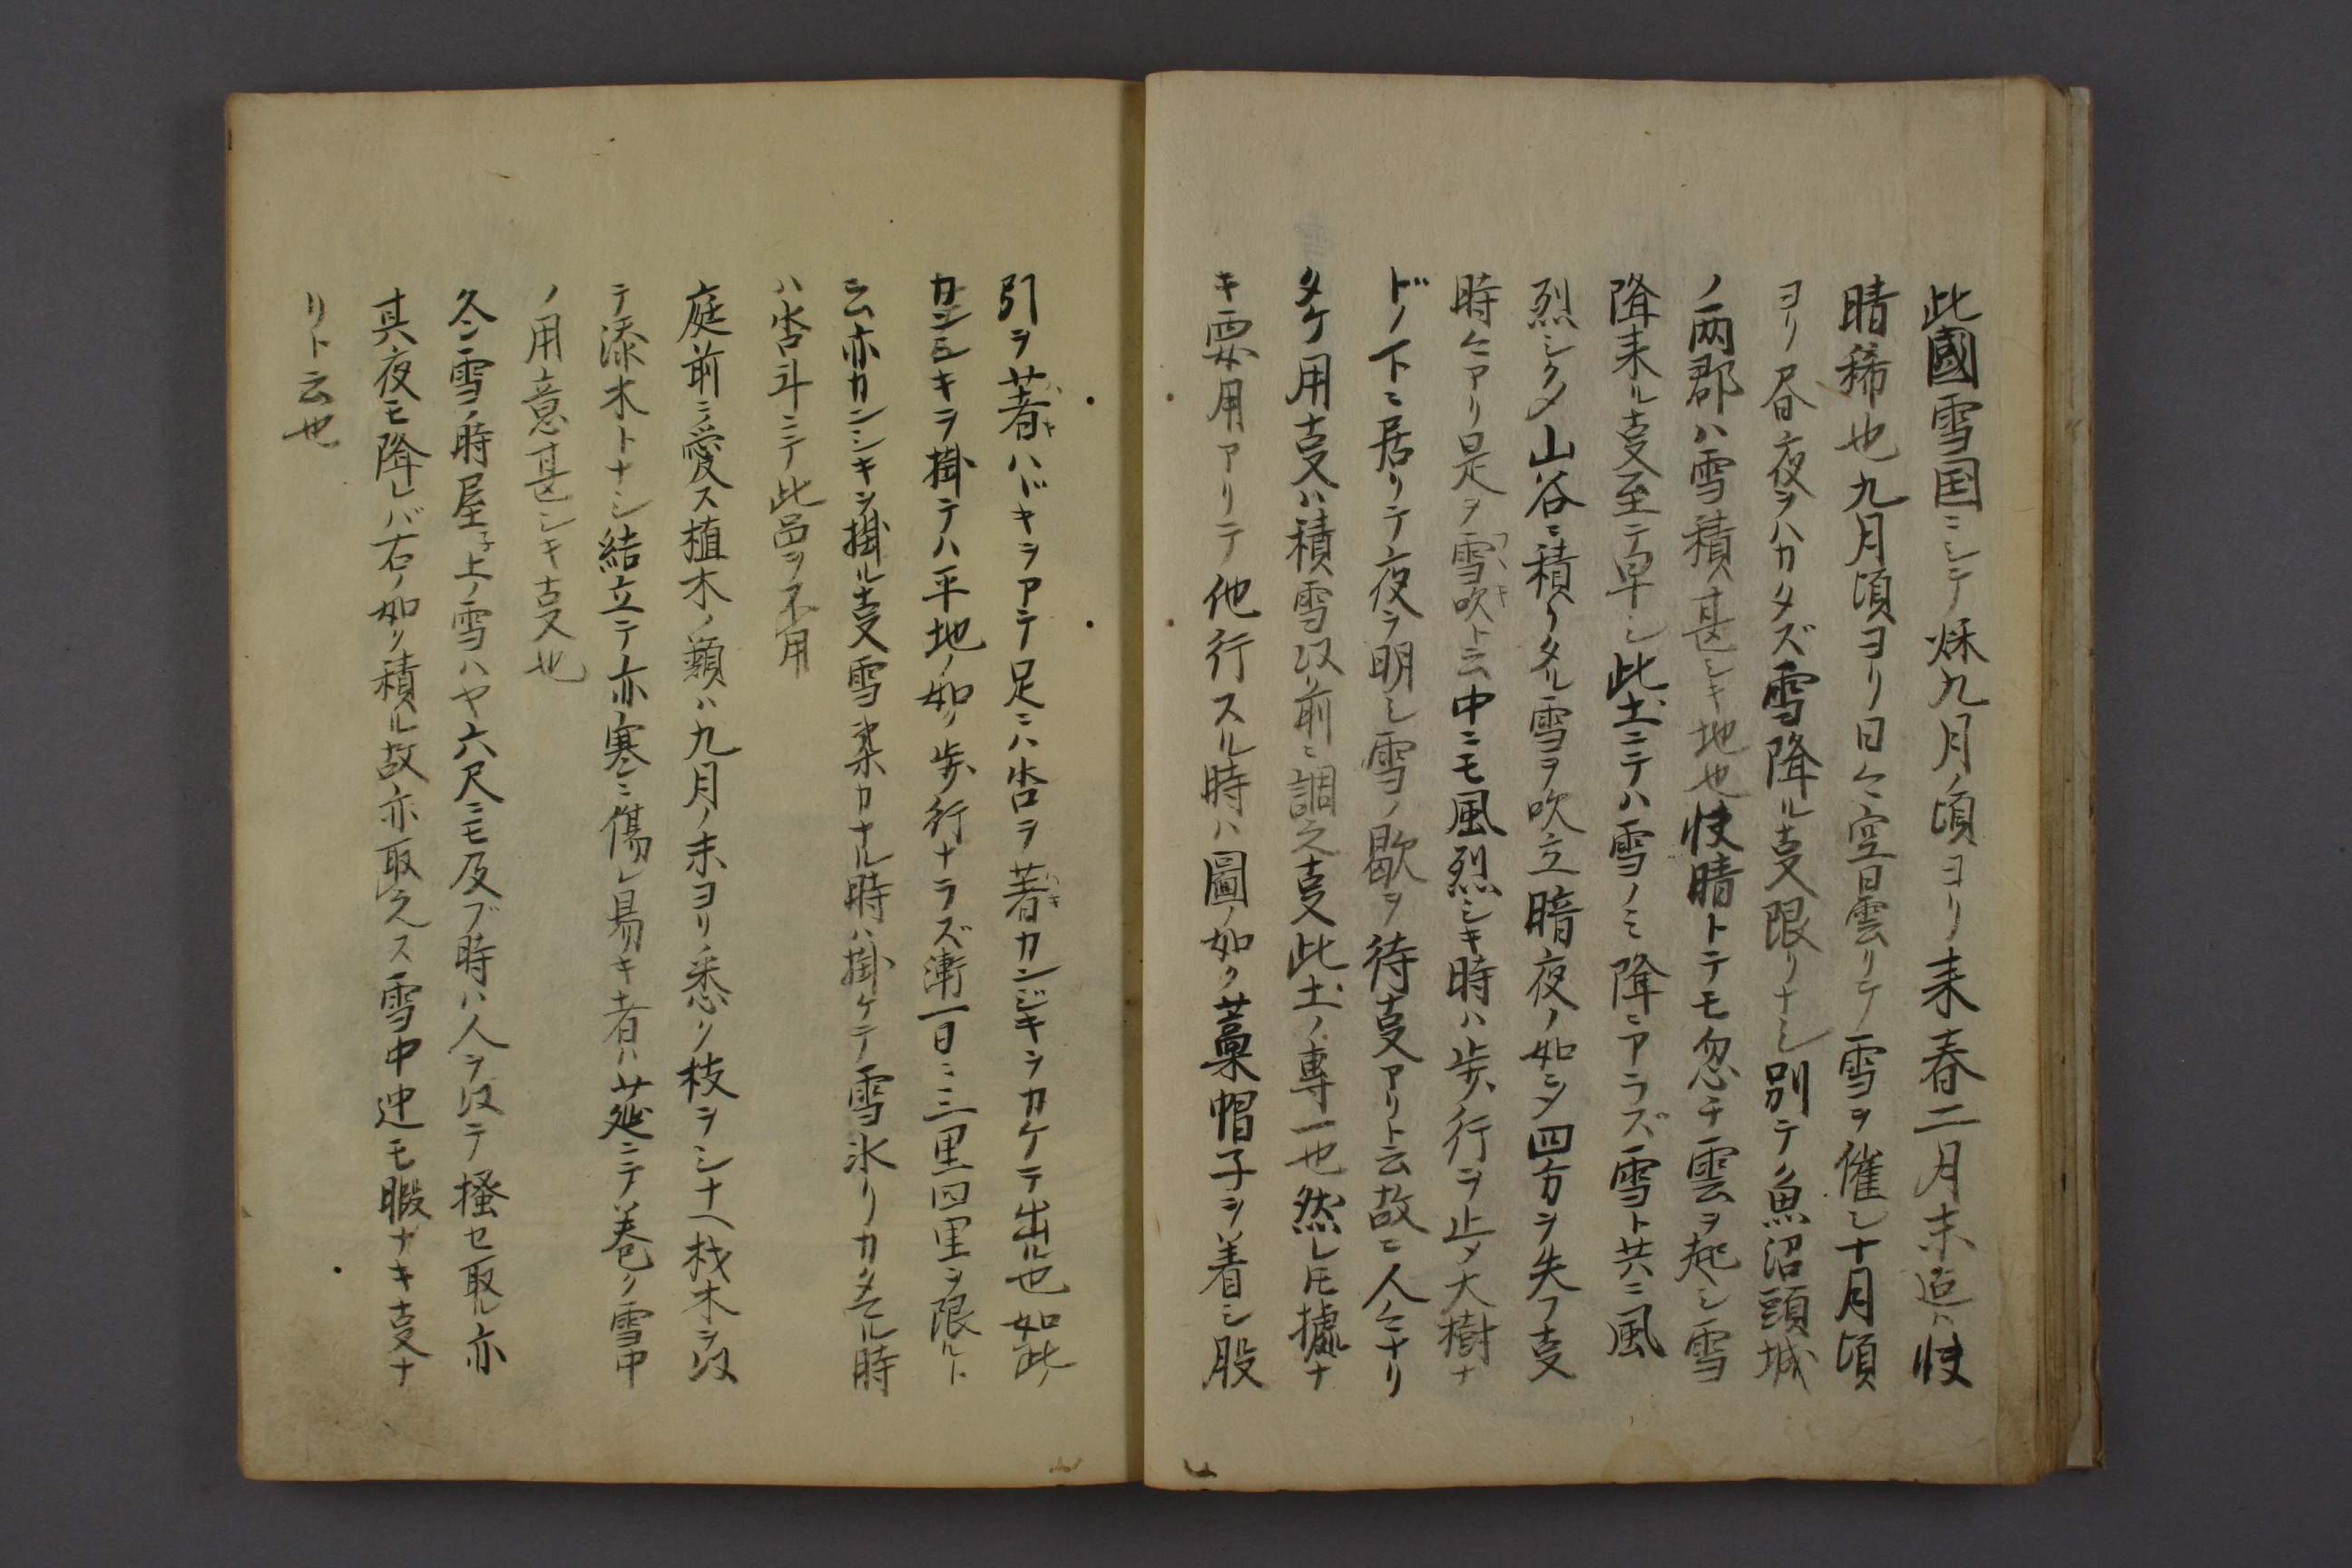 此國雪国ニシテ秌九月ノ頃ヨリ耒春二月末迠ハ快
晴稀也九月頃ヨリ日々空曇リテ雪ヲ催シ十月頃
ヨリ昼夜ヲハカタズ雪降ル叓限リナシ別テ魚沼頭城
ノ両郡ハ雪積甚シキ地也快晴トテモ忽チ雲ヲ起シ雪
降耒ル叓至テ早シ此土ニテハ雪ノミ降ニアラズ雪ト共ニ風
烈シク〆山谷ニ積リタル雪ヲ吹立暗夜ノ如シ〆四方ヲ失フ叓
時々アリ是ヲ雪吹ト云中ニモ風烈シキ時ハ歩行ヲ止メ大樹ナ
ドノ下ニ居リテ夜ヲ明シ雪ノ歇ヲ待叓アリト云故ニ人々ナリ
タケ用叓ハ積雪以前ニ調之叓此土ノ専一也然レ𪜈據ナ
キ要用アリテ他行スル時ハ圖ノ如ク藁帽子ヲ着シ股
引ヲ着ハバキヲアテ足ニハ沓ヲ着カンジキヲカケテ出ル也如此
カンシキヲ掛テハ平地ノ如ク歩行ナラズ漸一日ニ三里四里ヲ限ルト
云亦カンシキヲ掛ル叓雪柔カナル時ハ掛ケテ雪氷リカタマル時
ハ沓斗ニテ此品ヲ不用
庭前ニ愛ス植木ノ類ハ九月ノ末ヨリ悉ク枝ヲシナヘ杖木ヲ以
テ添木トナシ結立テ亦寒ニ傷レ易キ者ハ莚ニテ巻ク雪中
ノ用意甚シキ叓也
冬雪ノ時屋子上ノ雪ハヤ六尺ニモ及ブ時ハ人ヲ以テ掻セ取ル亦
其夜モ降レバ右ノ如ク積ル故亦取之ス雪中迚モ暇ナキ叓ナ
リト云也